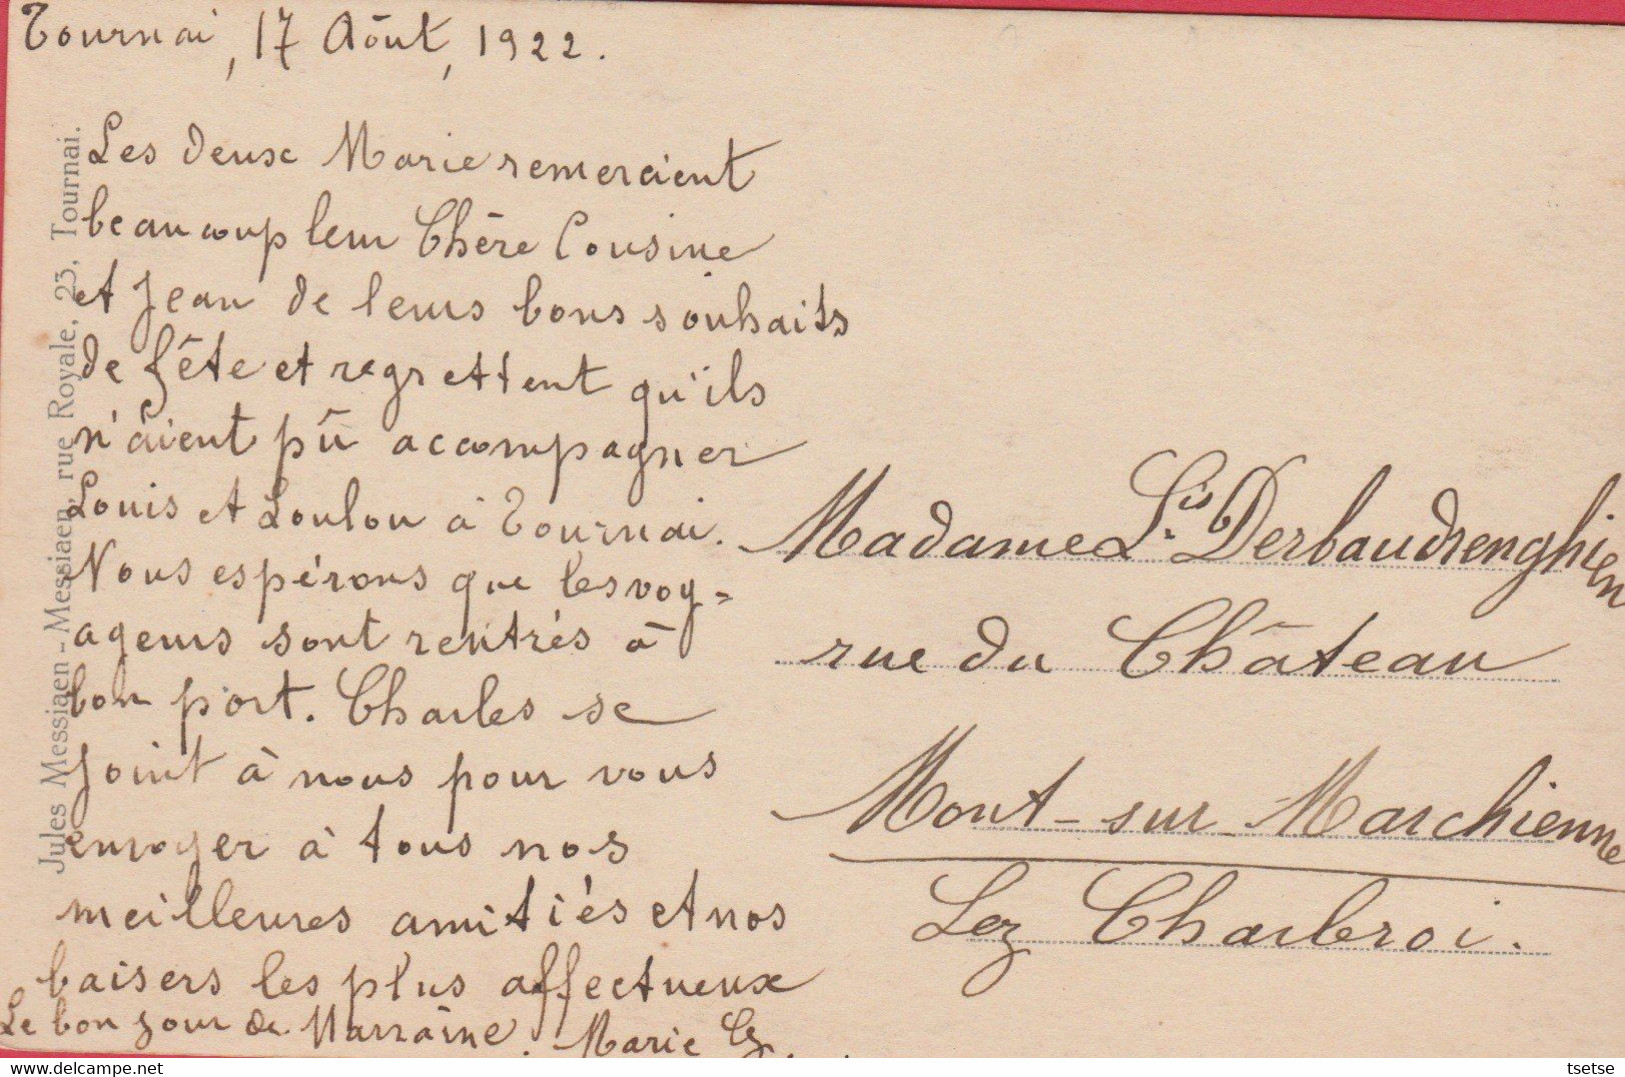 Tournai, 17 Août, 1922.
Les deux Marie remercient
beaucoup leur Chère Cousine
et Jean de leurs bons souhaits
de fête et regrettent qu'ils
n'aient pû accompagner
Louis et Loulou à Tournai.
Nous espérons que les voy=
ageurs sont rentrés à
bon port. Charles se
joint à nous pour vous
envoyer à tous nos
meilleures amitiés et nos
baisers les plus affectueux
Le bon jour de Marraine. Marie
Jules Messiaen-Messiaen, rue Royale, 23, Tournai.
Madame Ls Derbaudrenghien
rue du Château
Mont-sur-Marchienne
Lez Charleroi.
www.delcampe.net
tsetse